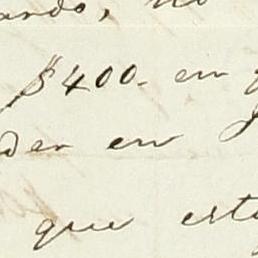 ando, no
$400- en
der en
que esta